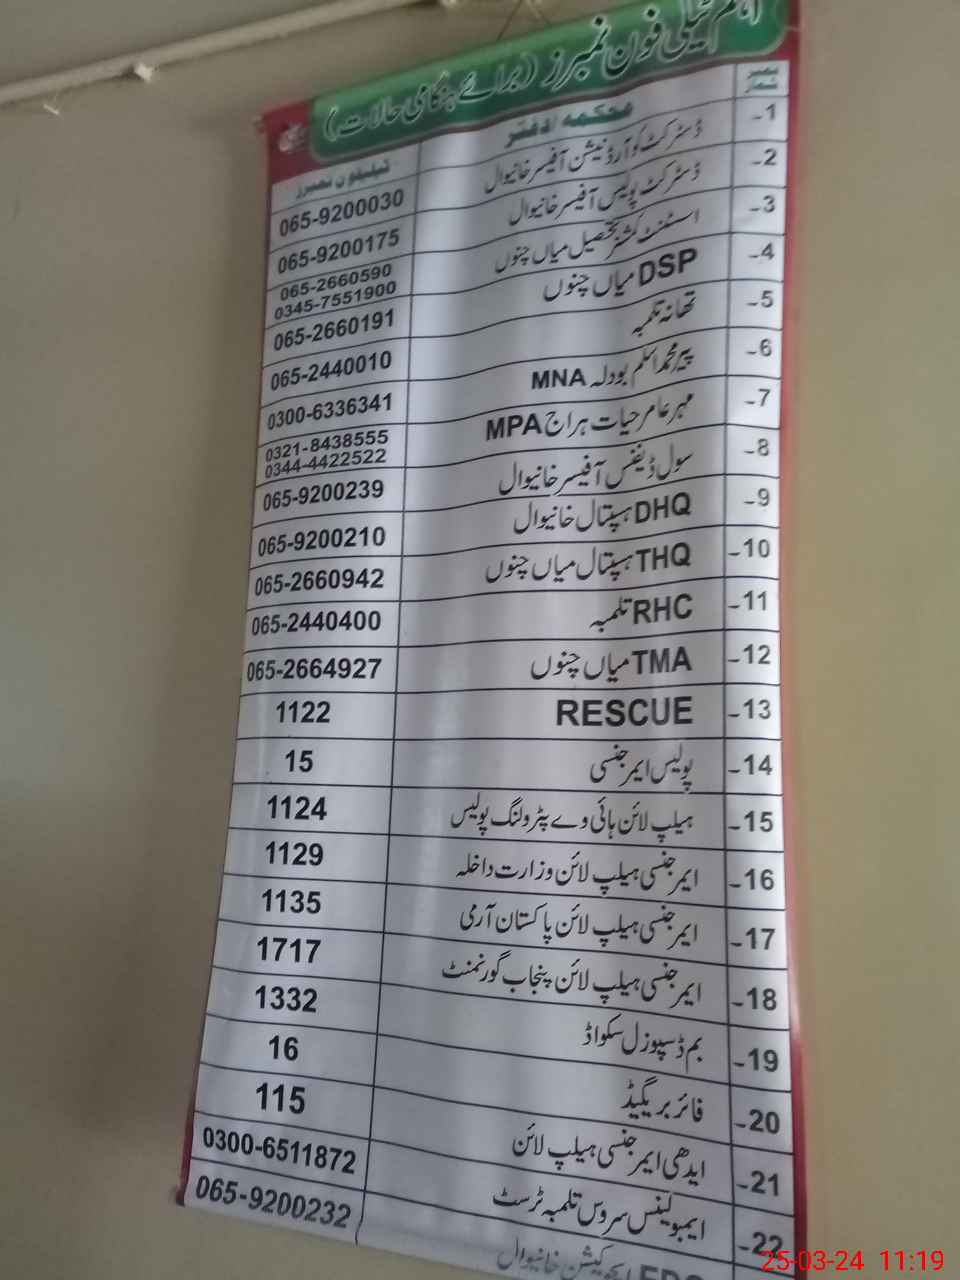 اہم ٹیلی فون نمبرز (برائے ہنگامی حالات)
نمبر شمار محکمہ / دفتر ٹیلیفون نمبرز
1- ڈسٹرکٹ کوآرڈنیشن آفیسر خانیوال 065-9200030
2- ڈسٹرکٹ پولیس آفیسر خانیوال 065-9200175
3- اسسٹنٹ کمشنر تحصیل میاں چنوں 065-2660590
0345-7551900
4- DSP میاں چنوں 065-2660191
5- تھانہ تلمبہ 065-2440010
6- پیر محمد اسلم بودلہ MNA 0300-6336341
7- مہر عامر حیات ہراج MPA 0321-8438555
0344-4422522
8- سول ڈیفنس آفیسر خانیوال 065-9200239
9- DHQ ہسپتال خانیوال 065-9200210
10- THQ ہسپتال میاں چنوں 065-2660942
11- RHC تلمبہ 065-2440400
12- TMA میاں چنوں 065-2664927
13- RESCUE 1122
14- پولیس ایمرجنسی 15
15- ہیلپ لائن ہائی وے پٹرولنگ پولیس 1124
16- ایمرجنسی ہیلپ لائن وزارت داخلہ 1129
17- ایمرجنسی ہیلپ لائن پاکستان آرمی 1135
18- ایمرجنسی ہیلپ لائن پنجاب گورنمنٹ 1717
19- بم ڈسپوزل سکواڈ 1332
20- فائر بریگیڈ 16
21- ایدھی ایمرجنسی ہیلپ لائن 115
22- ایمبولینس سروس تلمبہ ٹرسٹ 0300-6511872
ایجوکیشن خانیوال 065-9200232
25-03-24 11:19